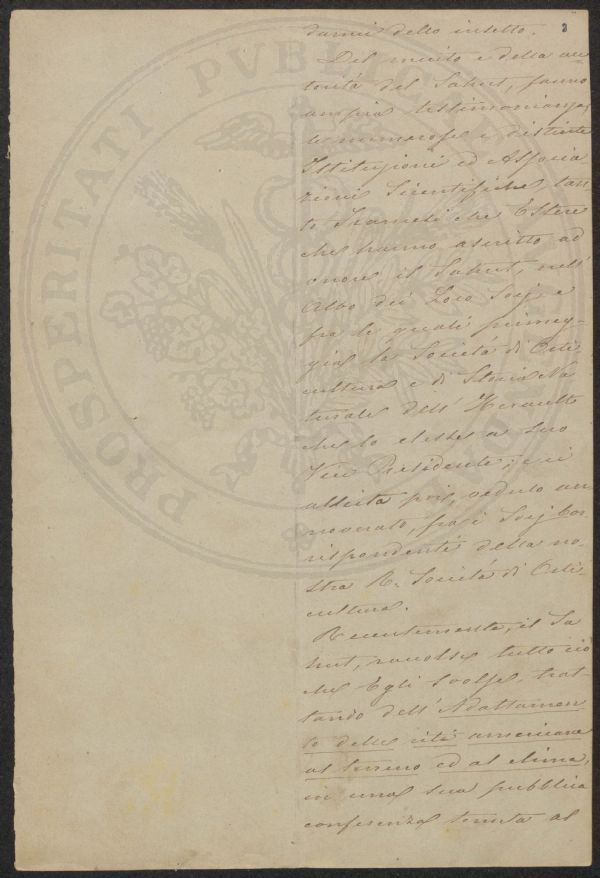 3
danni dello insetto.
Del merito e della au
torità del Sahut, fanno
ampia testimonianza,
le numerose e distinte
Istituzioni ed Associa
zioni Scientifiche, tan
to Francesi che Estere
che hanno ascritto ad
onore il Sahut, nell'
Albo dei Loro Socj, e
fra le quali primeg-
gia la Società di Orti
cultura e di Storia Na
turale dell' Herault
che lo elesse a suo
Vice Presidente; e ci
allieta poi, vederlo an
noverato, fra i Socj Cor
rispondenti della no-
stra R. Società di Orti
cultura.
Recentemente, il Sa
hut, raccolse tutto ciò
che Egli svolse, trat-
tando dell' Adattamen
to delle viti americane
al terreno ed al clima,
in una sua pubblica
conferenza tenuta al
PROSPERITATI PVBLICAE